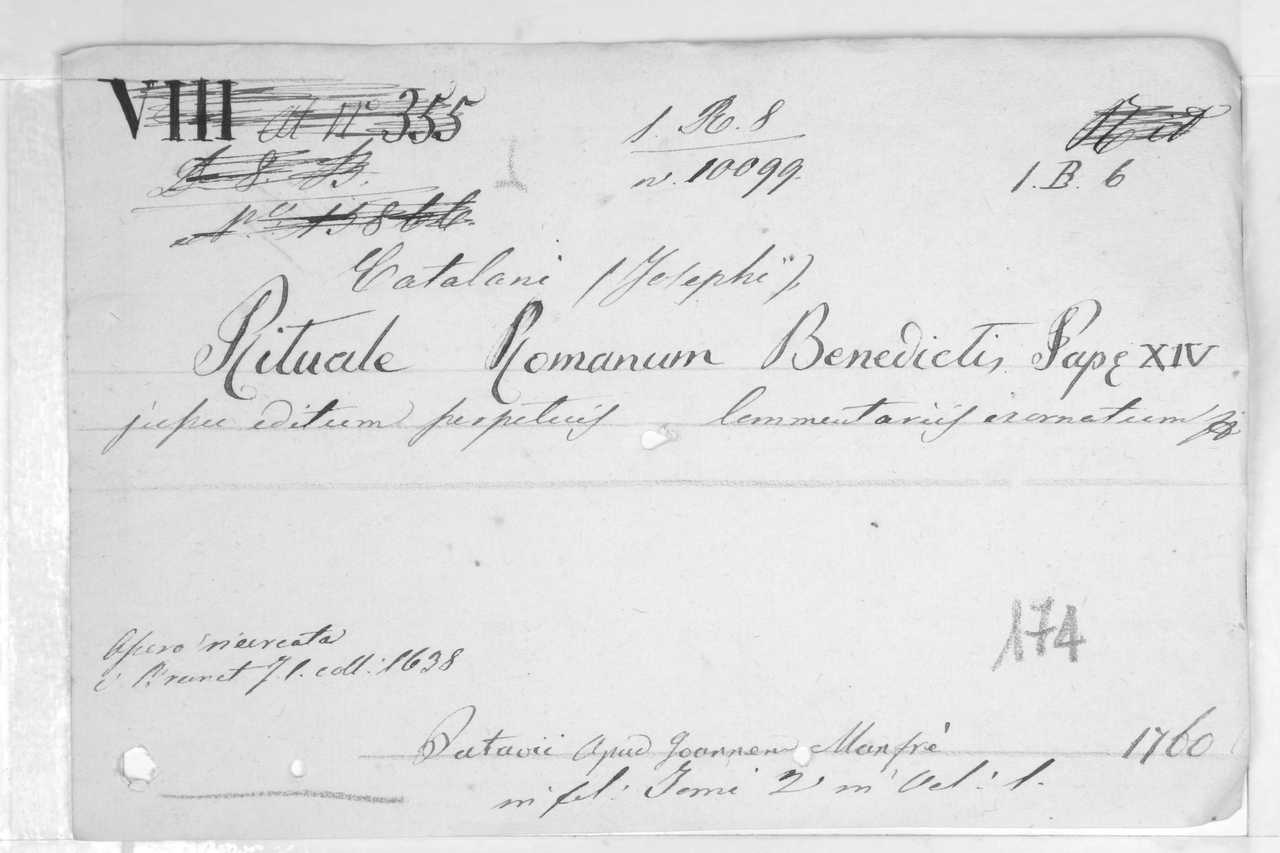 VIII
N° 355
1. R. 8
n. 10099.
1. B. 6
Catalani (Josephi)
Rituale Romanum Benedictis Papę XIV
jussu editum perpetuis Commentariis exornatum
174
Opera ricercata
Brunet T. 1. coll: 1638
Patavii Apud Joannem Manfrè 1760
in fol: Tomi 2 in Vol: 1.